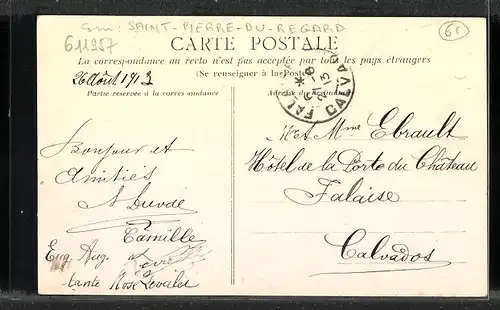 Gm: SAINT-PIERRE-DU-REGARD
611957
61
CARTE POSTALE
La correspondance au recto n'est pas acceptée par tous les pays étrangers
(Se renseigner à la Poste)
26 Août 1913
Partie réservée à la correspondance
Adresse du
FAL CALVA
Bonjour et
Amitiés
Camille
Eug. Aug.
tante Rose
M et Mme Ebrault
Hôtel de la Porte du Château
Falaise
Calvados